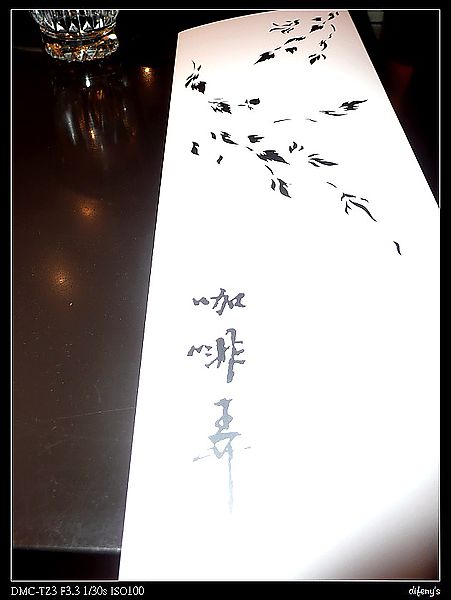 咖啡弄
DMC-TZ3 F3.3 1/30s ISO100
difeny's